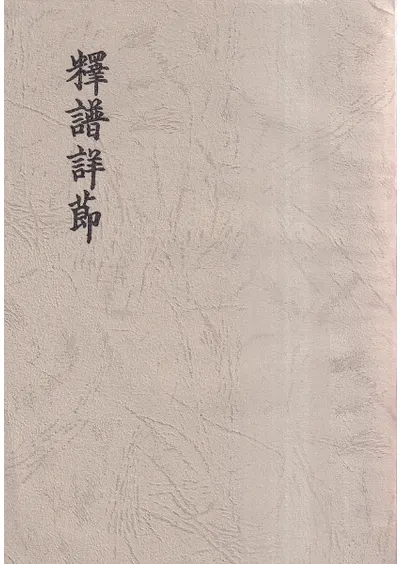 釋譜詳節